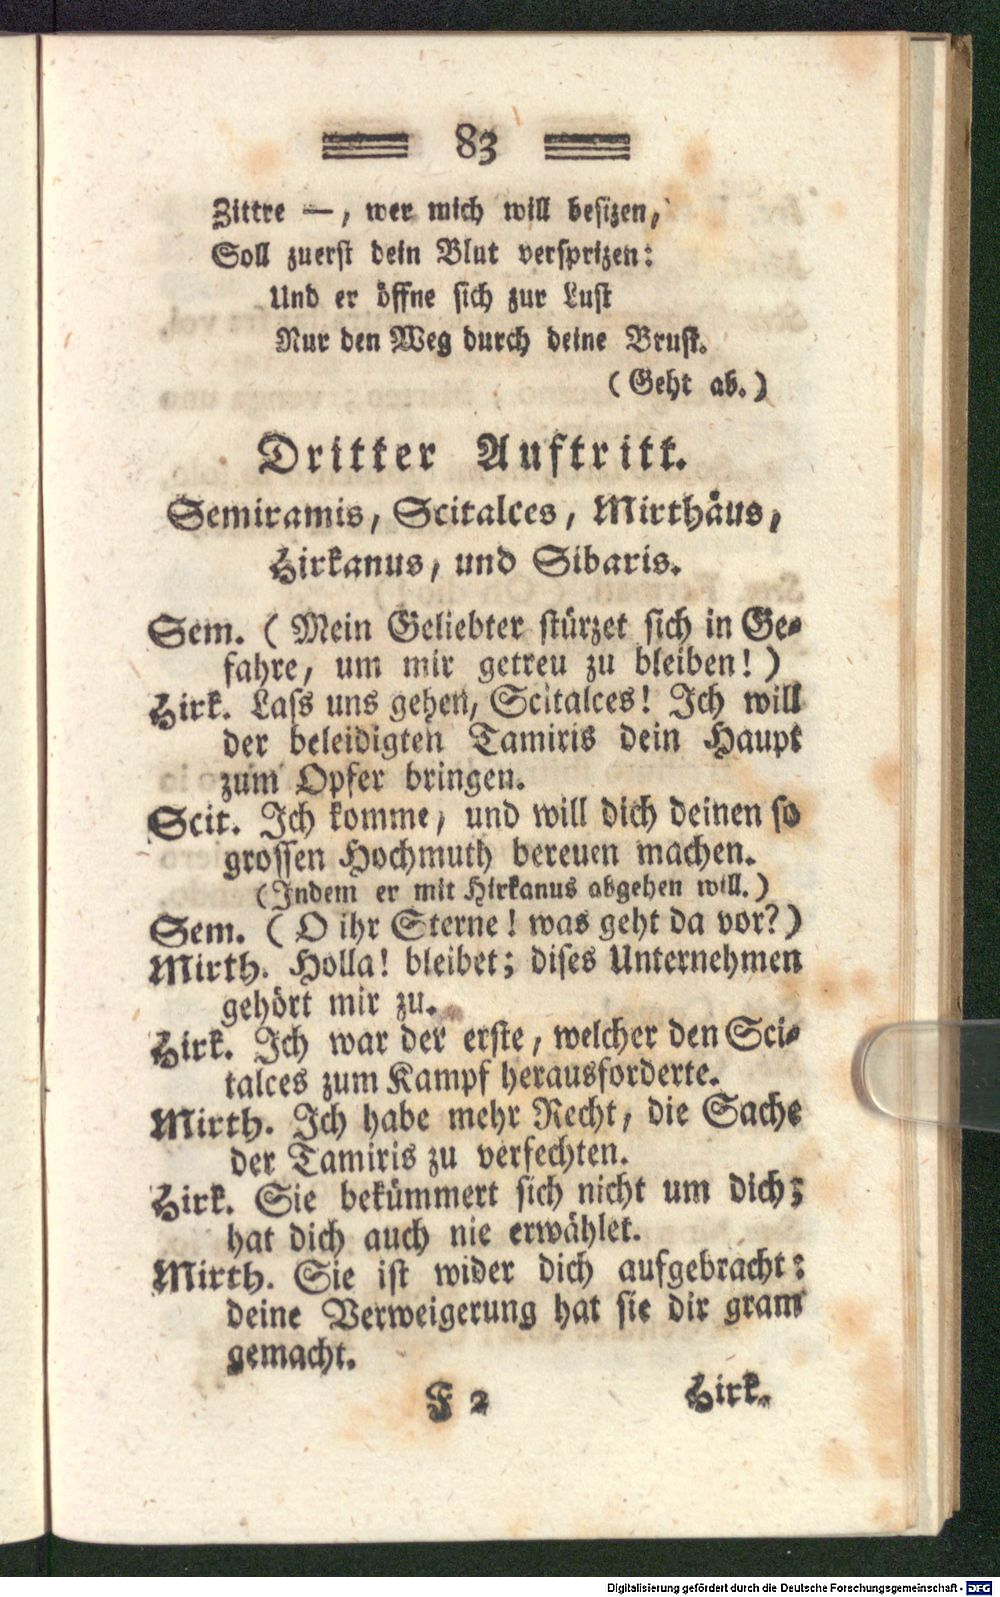 83
Zittre —, wer mich will besizen,
Soll zuerst dein Blut versprizen:
Und er öffne sich zur Lust
Nur den Weg durch deine Brust.
(Geht ab.)
Dritter Auftritt.
Semiramis, Scitalces, Mirthäus,
Hirkanus, und Sibaris.
Sem. (Mein Geliebter stürzet sich in Ge-
fahre, um mir getreu zu bleiben!)
Hirk. Lass uns gehen, Scitalces! Ich will
der beleidigten Tamiris dein Haupt
zum Opfer bringen.
Scit. Ich komme, und will dich deinen so
grossen Hochmuth bereuen machen.
(Indem er mit Hirkanus abgehen will.)
Sem. (O ihr Sterne! was geht da vor?)
Mirth. Holla! bleibet; dises Unternehmen
gehört mir zu.
Hirk. Ich war der erste, welcher den Sci-
talces zum Kampf herausforderte.
Mirth. Ich habe mehr Recht, die Sache
der Tamiris zu verfechten.
Hirk. Sie bekümmert sich nicht um dich;
hat dich auch nie erwählet.
Mirth. Sie ist wider dich aufgebracht:
deine Verweigerung hat sie dir gram
gemacht.
F 2 Hirk.
Digitalisierung gefördert durch die Deutsche Forschungsgemeinschaft - DFG